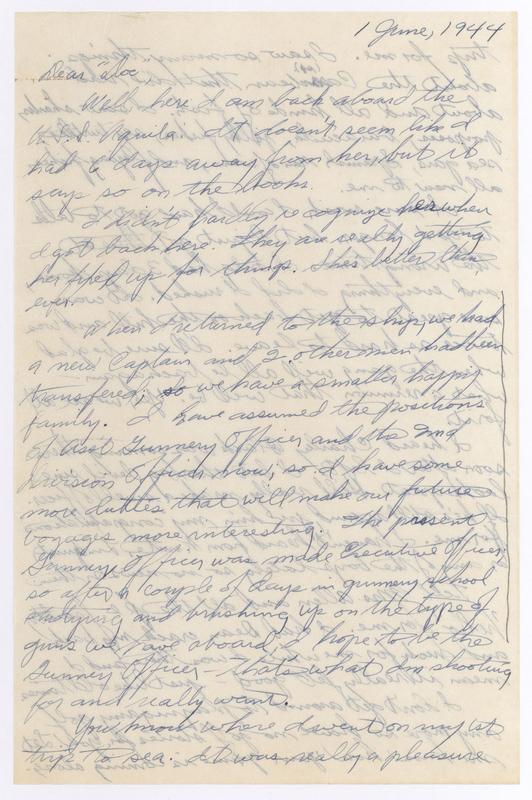 1 June, 1944
Dear "Doc"
Well here I am back aboard the
U.S.S. Aquila. It doesn't seem like I
had 6 days away from her, but it
says so on the books.
I didn't hardly recognize her when
I got back here. They are really getting
her fixed up for things. She's better than
ever.
When I returned to the ship, we had
a new Captain and 2 other men had been
transfered; so we have a smaller happy
family. I have assumed the positions
of Asst Gunnery Officer and the 2nd
Division Officer now; so I have some
more duties that will make our future
voyages more interesting. The present
Gunnery Officer was made Executive Officer;
so after a couple of days in gunnery school
studying and brushing up on the type of
guns we have aboard, I hope to be the
Gunnery Officer - that's what I'm shooting
for and really want.
You know where I went on my 1st
trip to sea. It was really a pleasure